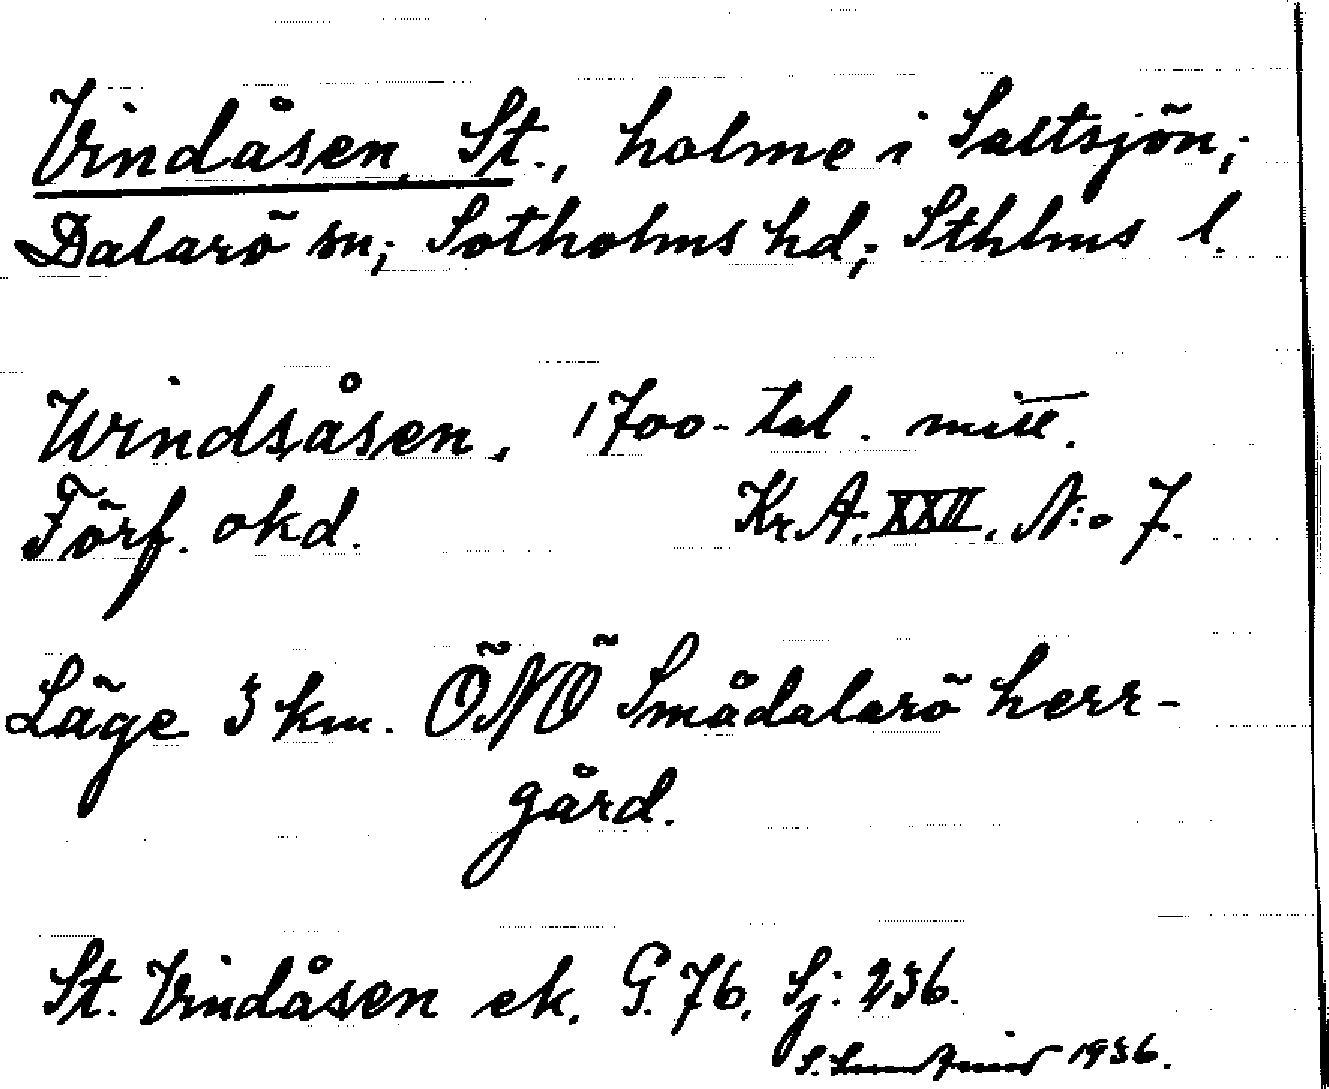 Vindåsen, St., holme i Saltsjön,
Dalarö sn; Sotholms hd; Sthlms l.
Windsåsen, 1700-tal. mitt.
Förf. okd. Kr.A. XXII. N:o 7.
Läge 3 km. ÖNÖ Smådalarö herr-
gård.
St. Vindåsen ek. G. 76. Sj: 236.
1936.